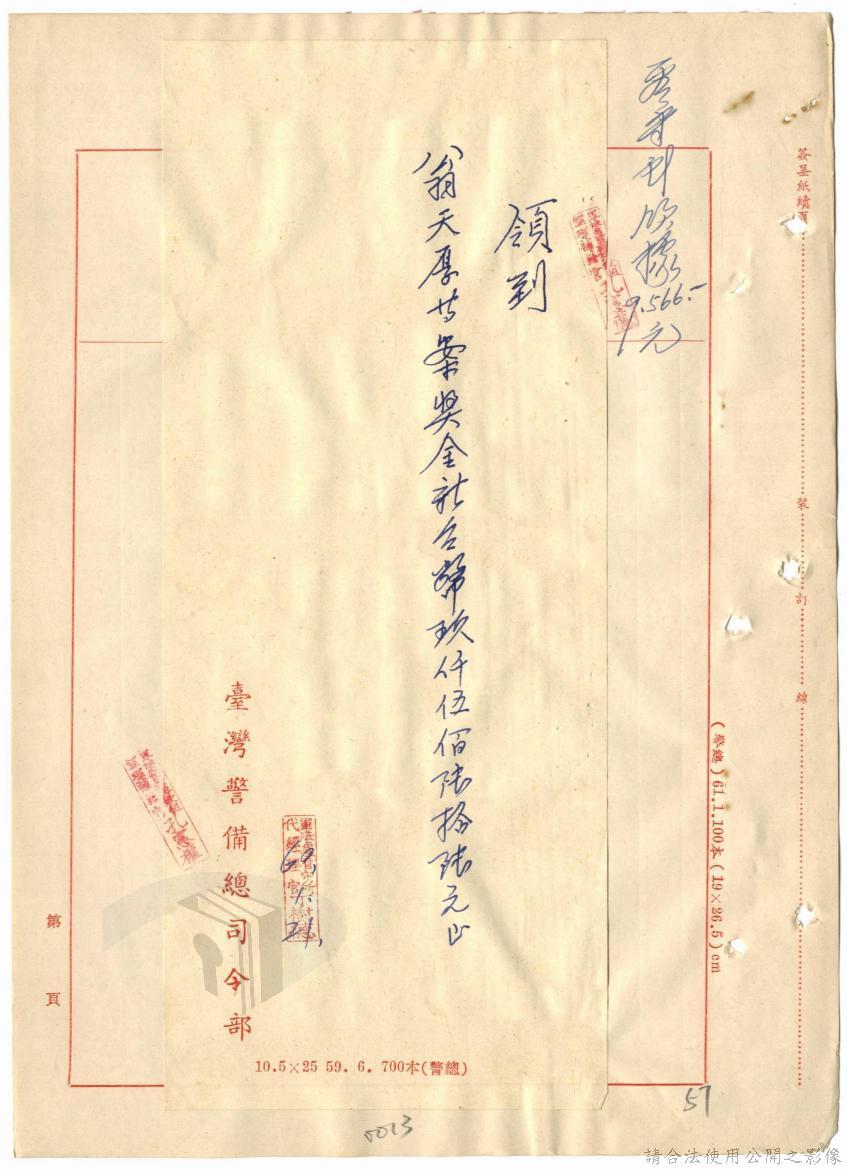 簽呈紙續頁
裝
訂
線
(警總) 61.1.100本 (19×26.5) cm
9.566.-
元
領到
翁天厚等案獎金新台幣玖仟伍佰陸拾陸元正
臺灣警備總司令部
10.5×25 59. 6. 700本(警總)
第 頁
57
0013
請合法使用公開之影像